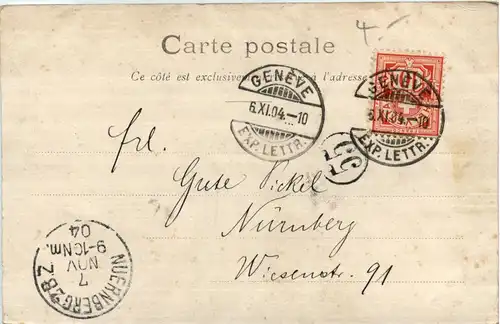 4.-
Carte postale
Ce côté est exclusivem à l'adresse
GENÈVE
6.XI.04.-10
EXP. LETTR.
GENÈVE
6.XI.04.-10
EXP. LETTR.
Frl.
Gute Pickel
Nürnberg
Wiesenstr. 91
NUERNBERG 2 B Z
7
NOV
04
9-10Nm.